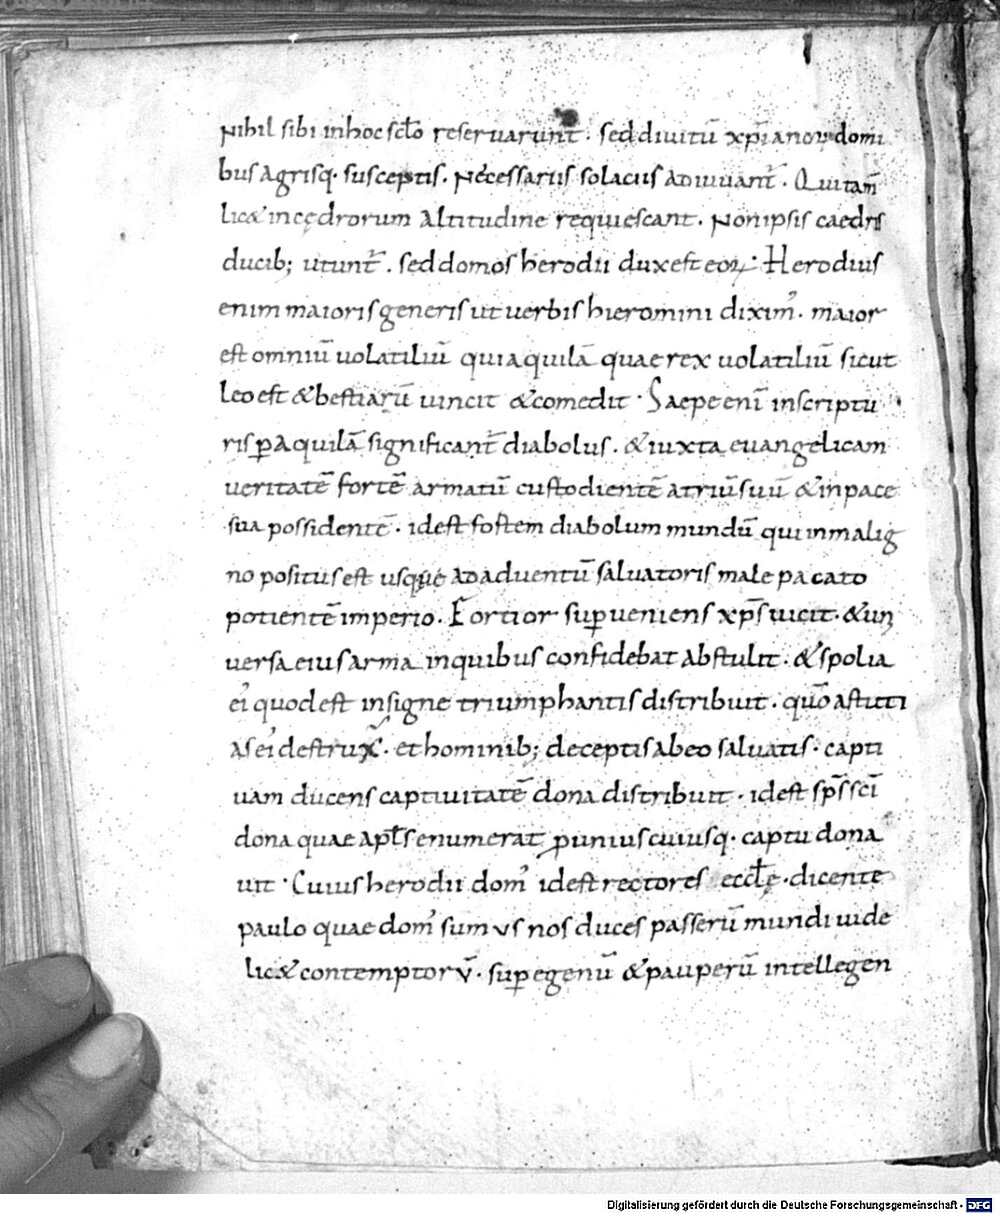 Nihil sibi inhoc sc̄lo reseruarunt̄ . sed diuitū xp̄ianoꝝ domi
bus agrisq· susceptis. Necessariis solaciis adiuuant̄ . Quitam̄
lic& incędrorum altitudine requiescant. Nonipsis caedris
ducib; utunt̄ . sed domos herodii dux est eoꝝ · Herodius
enim maioris generis ut uerbis hieromini diximꝰ. maior
est omniū uolatiliū quiaquilā quae rex uolatiliū sicut
leo est & bestiarū uincit &comedit · Saepe enī inscriptu
ris ꝑ aquilā significant̄ diabolus . & iuxta euangelicam
ueritatē fortē armatū custodientē atriū suū & inpace
sua possidentē · idest fostem diabolum mundū qui inmalig
no positus est usque ad aduentū saluatoris male pacato
potientē imperio. Fortior suꝑueniens xp̄s uicit · & uni
uersa eius arma inquibus confidebat abstulit · & spolia
ei quod est insigne triumphantis distribuit · quō astuti
as ei destrux̄ . et hominib; deceptis abeo saluatis · capti
uam ducens captiuitatē dona distribuit · idest sp̄s sc̄i
dona quae apl̄s enumerat p unius cuiusq· captu dona
uit · Cuius herodii domꝰ idest rectores eccl̄ę · dicente
paulo quae domꝰ sumus nos duces passerū mundi uide
lic& contemptorū · suꝑ egenū & pauperū intellegen
Digitalisierung gefördert durch die Deutsche Forschungsgemeinschaft - DFG